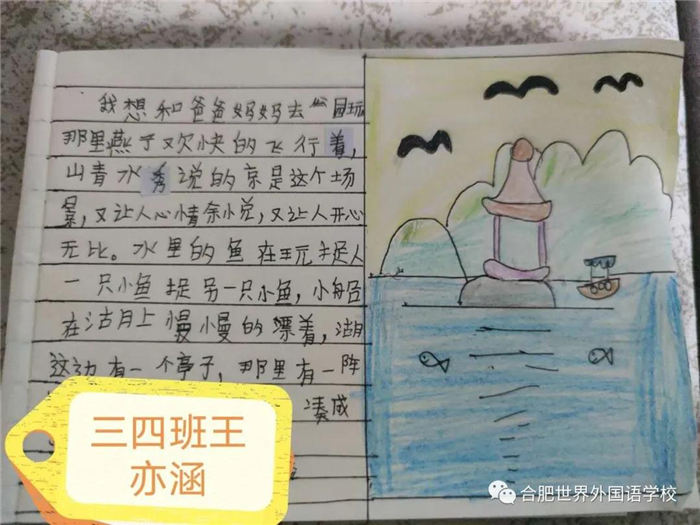 我想和爸爸妈妈去公园玩
那里燕子欢快的飞行着,
山青水秀说的就是这个场
景,又让人心情余小说,又让人开心
无比。水里的鱼在玩捉人
一只小鱼捉另一只小鱼,小船
在湖上慢慢的漂着,湖
这边有一个亭子,那里有一阵
凑成
三四班王
亦涵
合肥世界外国语学校